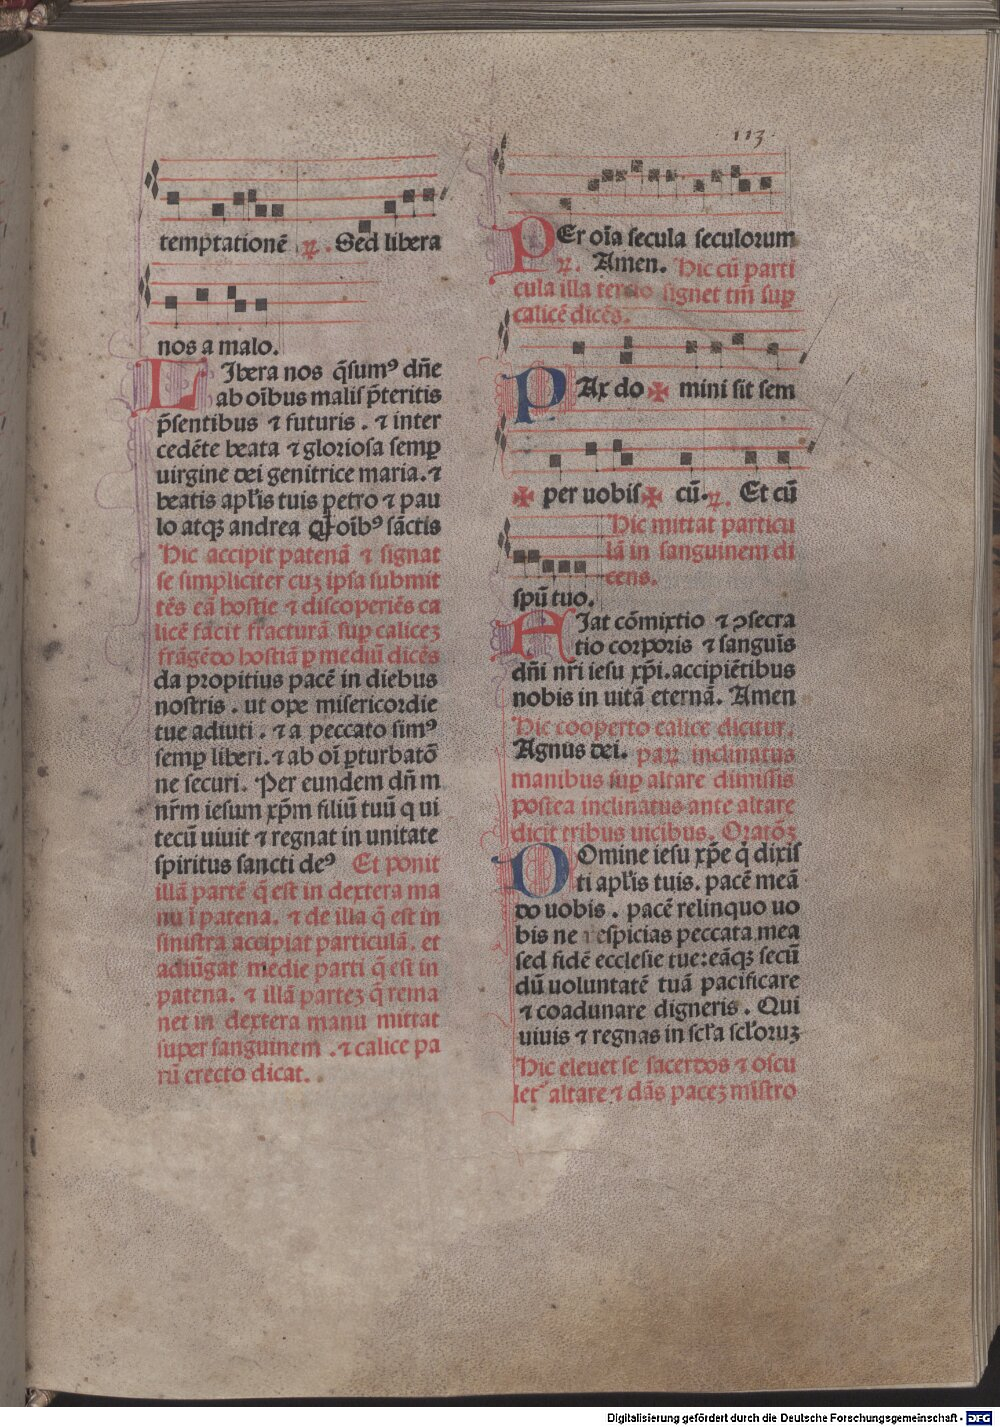 113.
temptationē ꝶ. Sed libera
nos a malo.
LIbera nos q̄sumꝰ dn̄e
ab oībus malis p̄teritis
p̄sentibus ⁊ futuris. ⁊ inter
cedēte beata ⁊ gloriosa semꝑ
uirgine dei genitrice maria. ⁊
beatis apl'is tuis petro ⁊ pau
lo atqꝫ andrea cū oībꝰ sāctis
Hic accipit patenā ⁊ signat
se simpliciter cuꝫ ipsa submit
tēs eā hostie ⁊ discoperiēs ca
licē facit fracturā suꝑ caliceꝫ
frāgēdo hostiā ꝑ mediū dicēs
da propitius pacē in diebus
nostris. ut ope misericordie
tue adiuti. ⁊ a peccato simꝰ
semꝑ liberi. ⁊ ab oī ꝑturbatō
ne securi. Per eundem dn̄m
nr̄m iesum xp̄m filiū tuū q ui
tecū uiuit ⁊ regnat in unitate
spiritus sancti deꝰ Et ponit
illā partē q̄ est in dextera ma
nu ī patena. ⁊ de illa q̄ est in
sinistra accipiat particulā. et
adiūgat medie parti q̄ est in
patena. ⁊ illā parteꝫ q̄ rema
net in dextera manu mittat
super sanguinem. ⁊ calice pa
rū erecto dicat.
PEr oīa secula seculorum
ꝶ. Amen. Hic cū parti
cula illa tercio signet tm̄ suꝑ
calicē dicēs.
PAx do ✠ mini sit sem
✠ per uobis ✠ cū. ꝶ. Et cū
Hic mittat particu
lā in sanguinem di
cens.
spū tuo.
FIat cōmixtio ⁊ ꝯsecra
tio corporis ⁊ sanguīs
dn̄i nr̄i iesu xp̄i. accipiētibus
nobis in uitā eternā. Amen
Hic cooperto calice dicitur.
Agnus dei. paꝝ inclinatus
manibus suꝑ altare dimissis
postea inclinatus ante altare
dicit tribus uicibus. Oratōꝫ
DOmine iesu xp̄e q̇ dixis
ti apl'is tuis. pacē meā
do uobis. pacē relinquo uo
bis ne respicias peccata mea
sed fidē ecclesie tue: eāqꝫ secū
dū uoluntatē tuā pacificare
⁊ coadunare digneris. Qui
uiuis ⁊ regnas in scl'a scl'oruꝫ
Hic eleuet se sacerdos ⁊ oscu
let' altare ⁊ dās paceꝫ mīstro
Digitalisierung gefördert durch die Deutsche Forschungsgemeinschaft - DFG